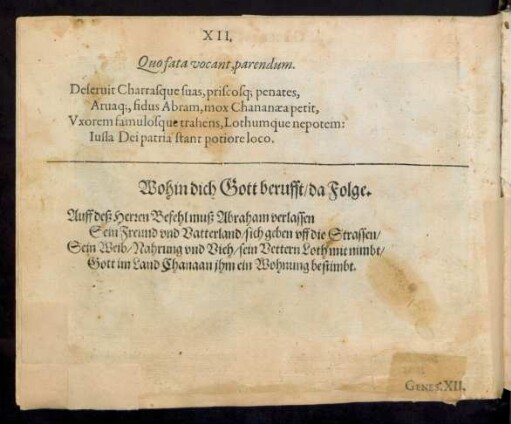 XII.
Quo fata vocant, parendum.
Deseruit Charrasque suas, priscosq; penates,
Aruaq;, fidus Abram, mox Chananæa petit,
Vxorem famulosque trahens, Lothumque nepotem:
Iussa Dei patria stant potiore loco.
Wohin dich Gott berufft/da Folge.
Auff deß Herren Befehl muß Abraham verlassen
Sein Freund vnd Vatterland/sich geben vff die Strassen/
Sein Weib/Nahrung vnd Vieh/sein Vettern Loth mit nimbt/
Gott im Land Chanaan jhm ein Wohnung bestimbt.
GENES. XII.